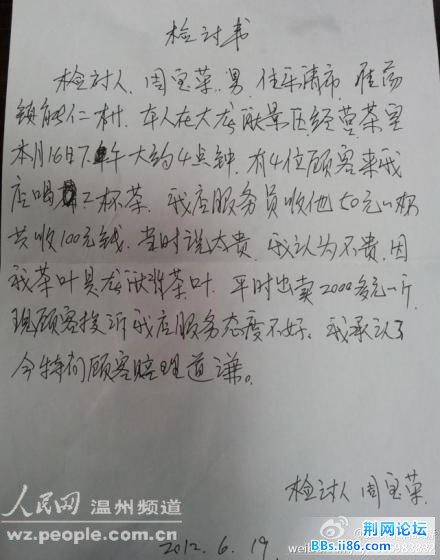 检讨书
检讨人,周宝荣,男,住乐清市,雁荡
镇能仁村.本人在大龙湫景区经营茶室
本月16日下午大约4点钟.有4位顾客来我
店喝了二杯茶.我店服务员收他50元一杯
共收100元钱.当时说太贵.我认为不贵.因
我茶叶是龙湫背茶叶.平时出卖2000多元一斤.
现顾客投诉我店服务态度不好.我承认了
今特向顾客赔理道谦。
检讨人 周宝荣.
2012.6.19
人民网 温州频道
wz.people.com.cn
荆网论坛
BBs.ii86.com